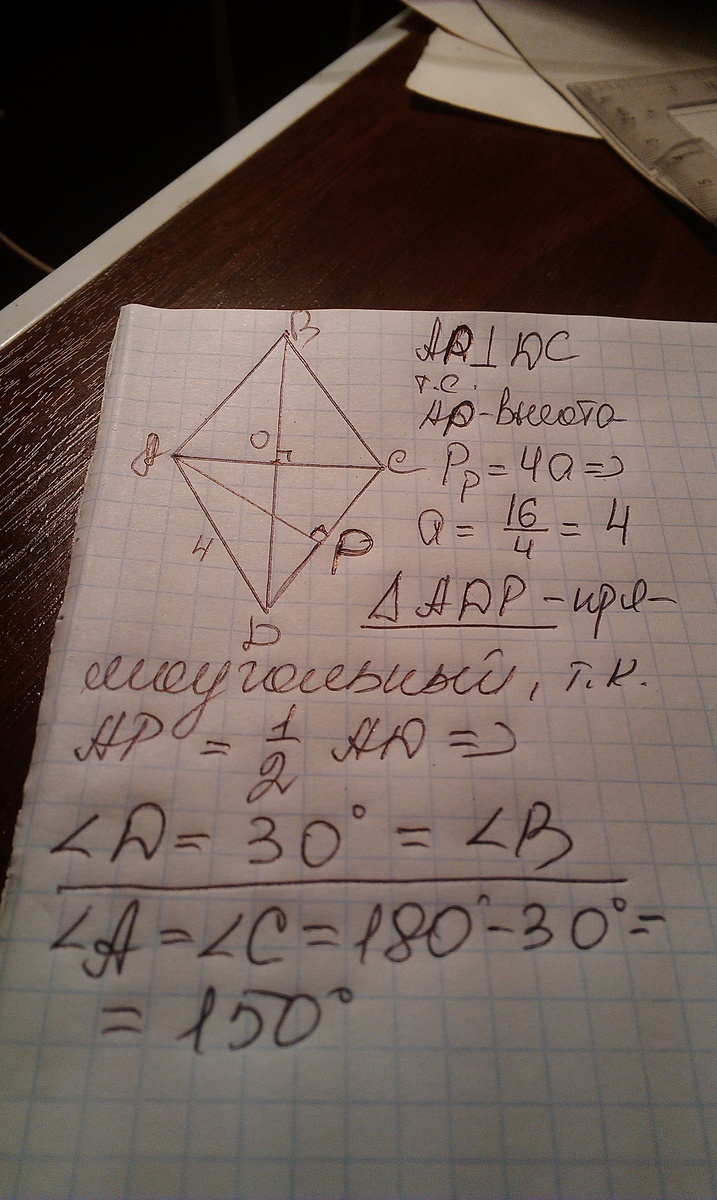 B
AP⊥DC
т.е.
AP-высота
O
A
C
Pр = 4a =>
a = 16/4 = 4
4
P
D
△ADP - пря-
моугольный, т.к.
AP = 1/2 AD =>
∠D = 30° = ∠B
∠A = ∠C = 180° - 30° =
= 150°